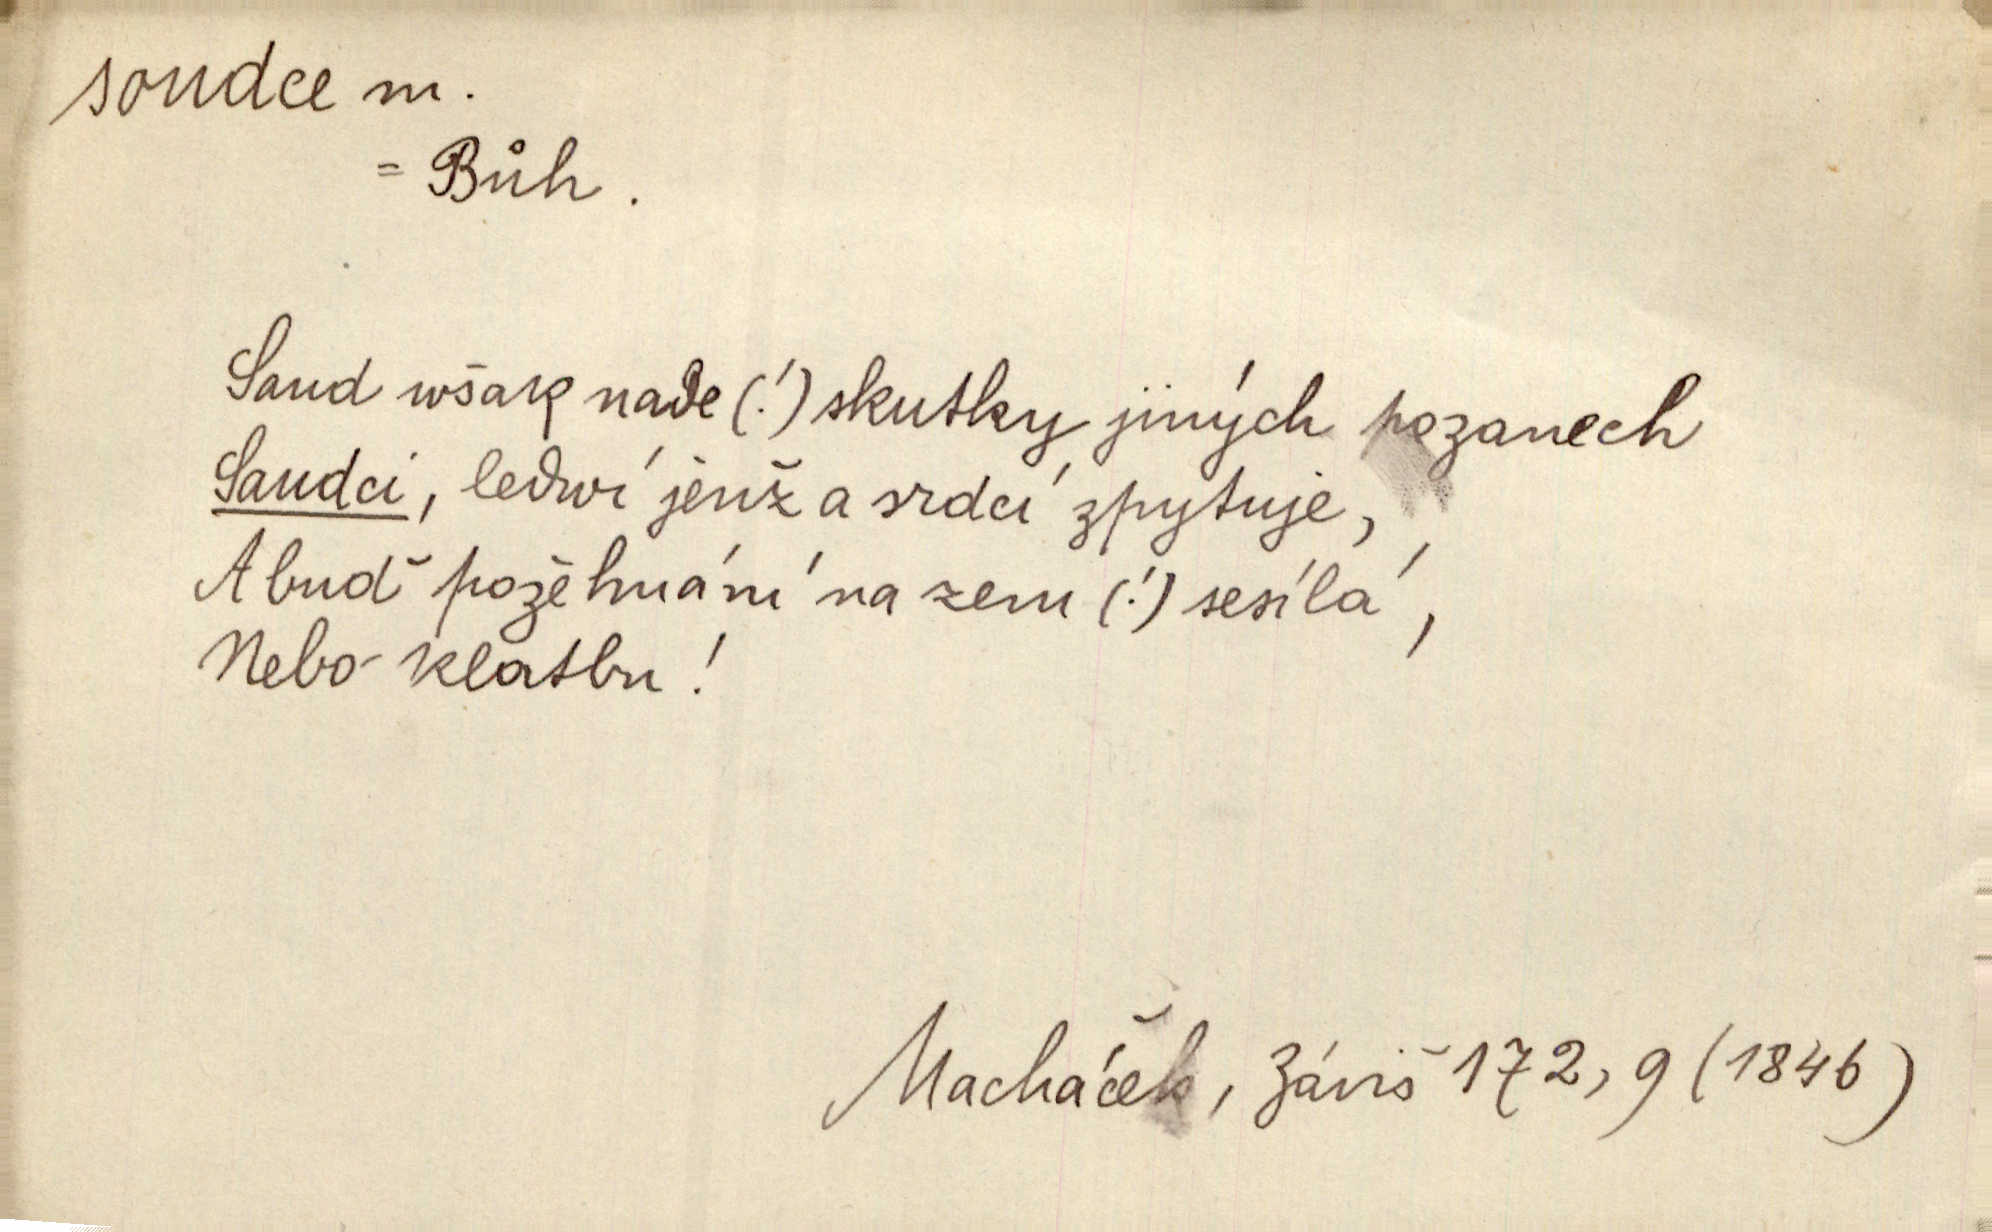 soudce m.
= Bůh.
Saud wšak nade (!) skutky jiných pozanech
Saudci, ledwí jenž a srdcí zpytuje,
A buď požehnání na zem (!) sesílá,
Nebo klatbu!
Macháček, Záviš 172, 9 (1846)